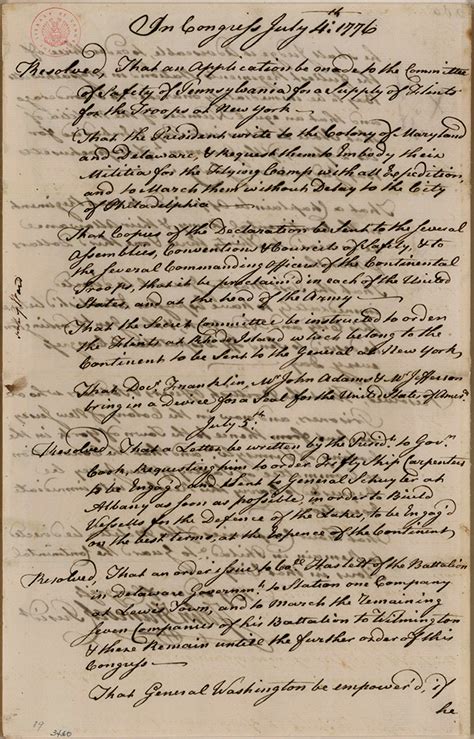 In Congress July 4th: 1776
Resolved, That an Application be made to the Committee
of Safety of Pennsylvania for a Supply of Flints
for the Troops at New York
That the President write to the Colony of Maryland
and Delaware, & Request them to Embody their
Militia for the Flying Camp with all Expedition,
and to March them without Delay to the City
of Philadelphia
That Copies of the Declaration be Sent to the Several
Assemblies, Convention & Councils of Safety, & to
the Several Commanding Officers of the Continental
Troops, that it be proclaim'd in each of the United
States, and at the head of the Army
That the Secret Committee be instructed to order
the Flints at Rhode Island which belong to the
Continent to be Sent to the General at New York
That Doctr. Franklin, Mr. John Adams & Mr. Jefferson
bring in a Device for a Seal for the United States of Amerca.
July 5th.
Resolved, That a Letter be written by the Presidt. to Govr.
Cook, Requesting him to order Fifty Ship Carpenters
to be Engag'd and Sent to General Schuyler at
Albany as soon as possible, in order to Build
Vessells for the Defence of the Lakes, to be Engag'd
on the best terms, at the expence of the Continent
Resolved, That an order issue to Coll. Haslett of the Battalion
in Delaware Governmt. to Station one Company
at Lewis Town, and to March the remaining
Seven Companies of his Battalion to Wilmington
& there Remain until the further order of this
Congress
That General Washington be empower'd, if
he
19
3460